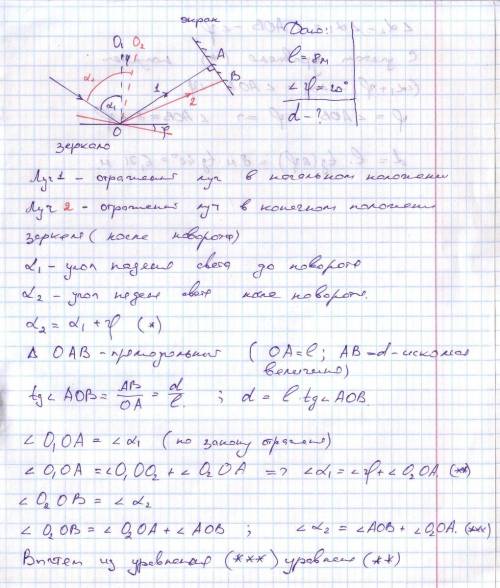 экран
Дано:
O₁ O₂
A
B
l = 8м
α₂
α₁
1
2
∠ φ = 20°
d - ?
O
φ
зеркало
Луч 1 - отраженный луч в начальном положении
Луч 2 - отраженный луч в конечном положении
зеркала (после поворота)
α₁ - угол падения света до поворота
α₂ - угол падения света после поворота.
α₂ = α₁ + φ (*)
Δ OAB - прямоугольный ( OA = l ; AB = d - искомая
величина)
tg∠AOB = AB/OA = d/l. ; d = l tg∠AOB.
∠O₁OA = ∠α₁ ( по закону отражения)
∠O₁OA = ∠O₁OO₂ + ∠O₂OA => ∠α₁ = ∠φ + ∠O₂OA. (**)
∠O₂OB = ∠α₂
∠O₂OB = ∠O₂OA + ∠AOB ; ∠α₂ = ∠AOB + ∠O₂OA. (***)
Вычтем из уравнения (***) уравнение (**)